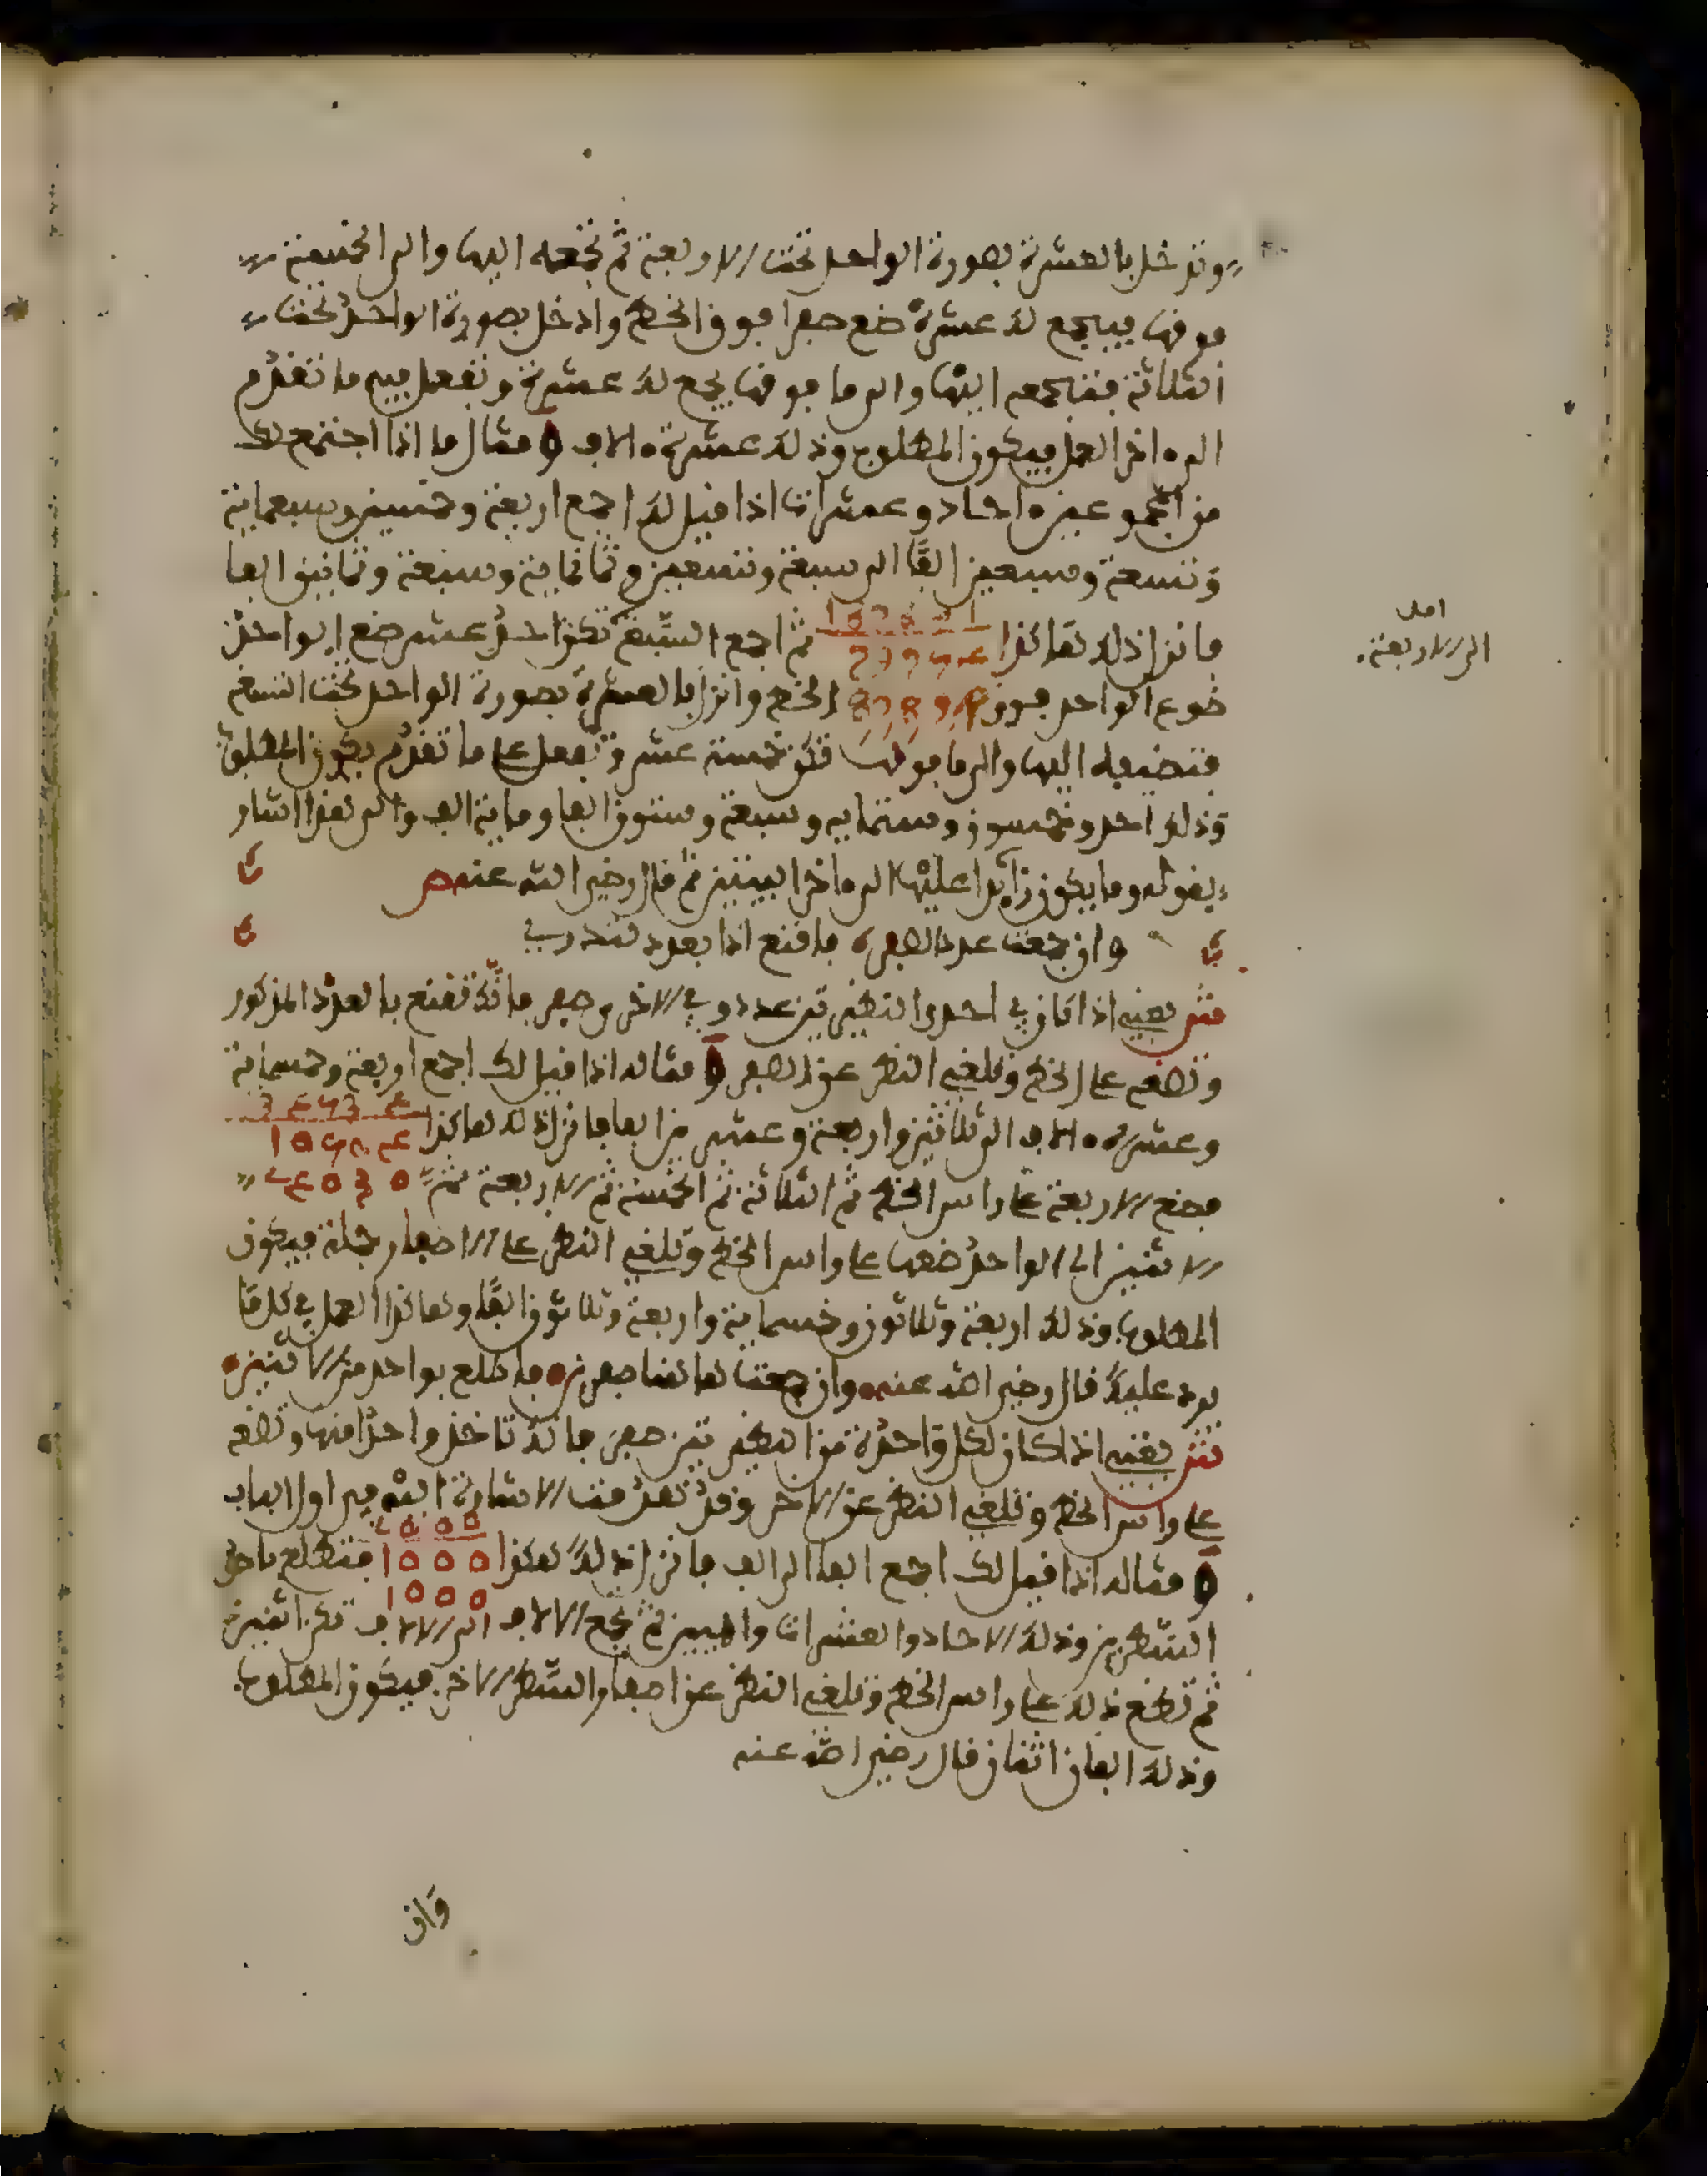 وتدخل بالعشرة بصورة الواحد تحت الاربعة ثم تجمعه اليها والى الخمسة
فوقها فيجمع لك عشرة ضع صفرا فوق الخط وادخل بصورة الواحد تحت
الثلاثة فتجمعه اليها والى ما فوقها يجمع لك عشرة وتفعل فيه ما تقدم
الى ءاخر العمل فيكون المطلوب وذلك عشرة ءالاف و مثال ما اذا اجتمع لك
من المجموعين ءاحاد وعشرات اذا قيل لك اجمع اربعة وخمسين وسبعماية
وتسعة وسبعين الفا الى سبعة وتسعين وثمانماية وسبعة وثمانين الفا
فانزل ذلك هاكذا ثم اجمع السبعة تكن احد عشر ضع الواحد
فوق الخط وانزل بالعشرة بصورة الواحد تحت التسعة
فتضيفه اليها والى ما فوقها تكن خمسة عشر وتفعل على ما تقدم يكون المطلوب
وذلك احد وخمسون وستماية وسبعة وستون الفا وماية الف والى هذا اشار
بقوله وما يكون زايدا عليها الى ءاخر البيتين ثم قال رضي الله عنه ص
وان جمعت عدد الصفر فاقنع اذا بعدد تدرب
ش يعني اذا كان في احد والنظيرتين عدد وفي الاخرى صفر فانك تقنع بالعدد المذكور
وتضعه على الخط وتلغي النظر عن الصفر و مثاله اذا قيل لك اجمع اربعة وخمسماية
وعشرة ءالاف الى ثلاثين واربعة وعشرين الفا فانزل ذلك هاكذا
فضع الاربعة على راس الخط ثم الثلاثة ثم الخمسة ثم الاربعة ثم 0 3 0 4 2
الاثنين الى الواحد ضعها على راس الخط وتلغي النظر على الاصفار جملة فيكون
المطلوب وذلك اربعة وثلاثون وخمسماية واربعة وثلاثون الفا وهاكذا العمل في كل ما
يرد عليك قال رضي الله عنه وان جمعت هاهنا صفرين فاطلع بواحد من الاثنين
ش يعني اذا كان لكل واحدة من النظيرتين صفر فانك تاخذ واحدا منها وتضعه
على راس الخط وتلغي النظر عن الاخر وقد تقدمت الاشارة اليه في اول الباب
و مثاله اذا قيل لك اجمع الفا الى الف فانزل ذلك هكذا 1000 فتطلع باحد
السطرين وذلك الاحاد والعشرات والميين ثم تجمع الالاف الى الالاف تكن اثنين
ثم تضع ذلك على راس الخط وتلغي النظر عن اصفار السطر الاخر فيكون المطلوب
وذلك الفان اثنان قال رضي الله عنه
وان
اصل
الى الاربعة